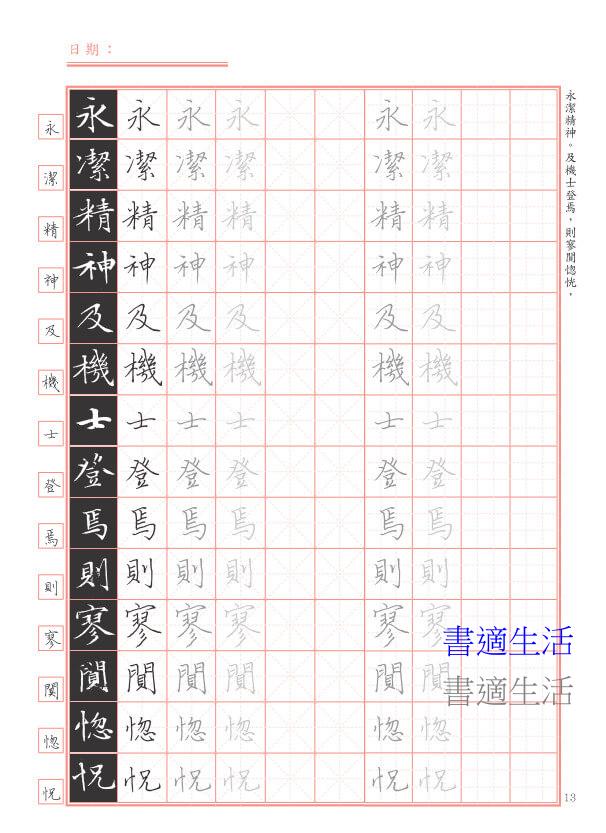 日期：
永潔精神。及機士登焉，則寥閴惚恍，
永 永永永永 永永
潔 潔潔潔潔 潔潔
精 精精精精 精精
神 神神神神 神神
及 及及及及 及及
機 機機機機 機機
士 士士士士 士士
登 登登登登 登登
焉 焉焉焉焉 焉焉
則 則則則則 則則
寥 寥寥寥寥 寥寥
閴 閴閴閴閴 閴閴
惚 惚惚惚惚 惚惚
怳 怳怳怳怳 怳怳
書適生活
書適生活
13